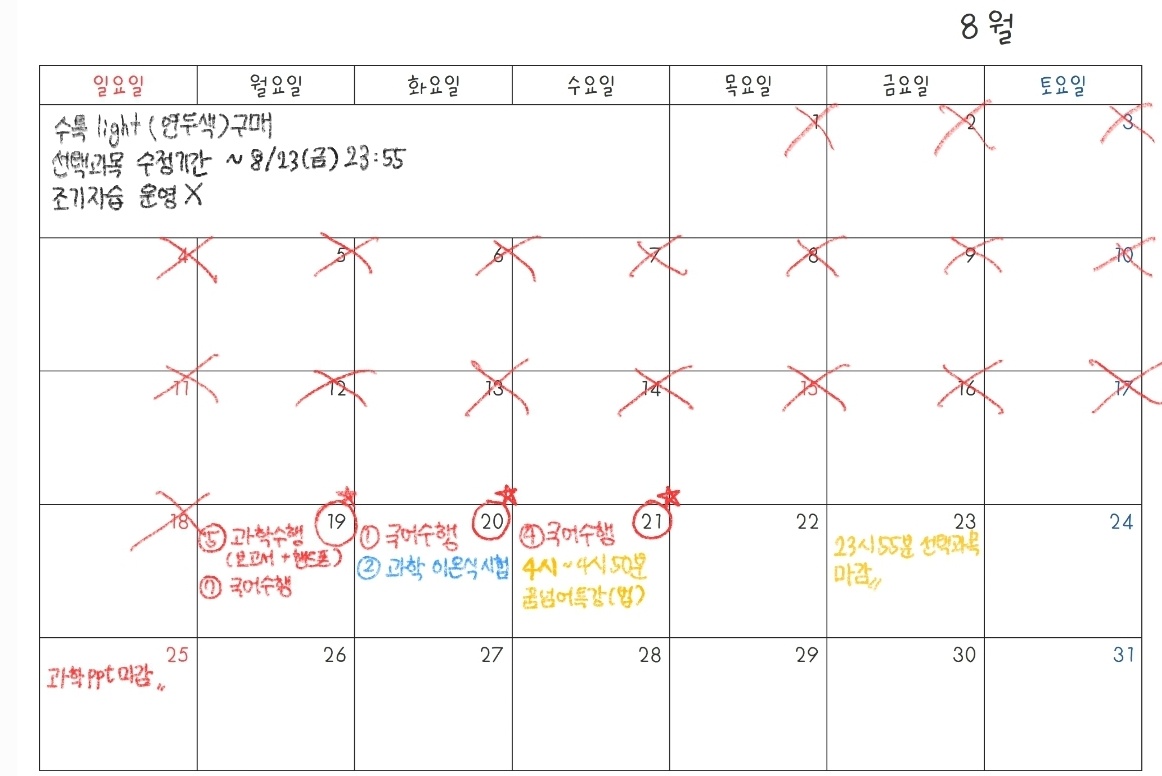 8월
일요일 월요일 화요일 수요일 목요일 금요일 토요일
수특 light (연두색) 구매
선택과목 수정기간 ~ 8/23(금) 23:55
조기자습 운영 X
1 2 3
4 5 6 7 8 9 10
11 12 13 14 15 16 17
18
19
⑤ 과학수행
(보고서 + 핸드폰)
⑦ 국어수행
20
① 국어수행
② 과학 이온식 시험
21
④ 국어수행
4시 ~ 4시 50분
꿈넘어특강(법)
22
23
23시 55분 선택과목
마감〃
24
25
과학 ppt 마감〃
26 27 28 29 30 31